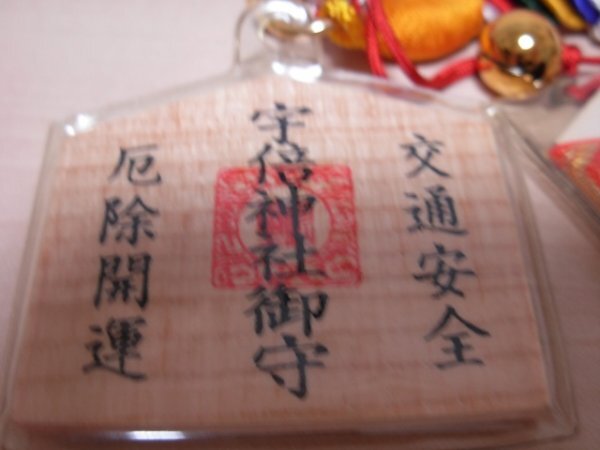 交通安全
宇倍神社御守
厄除開運